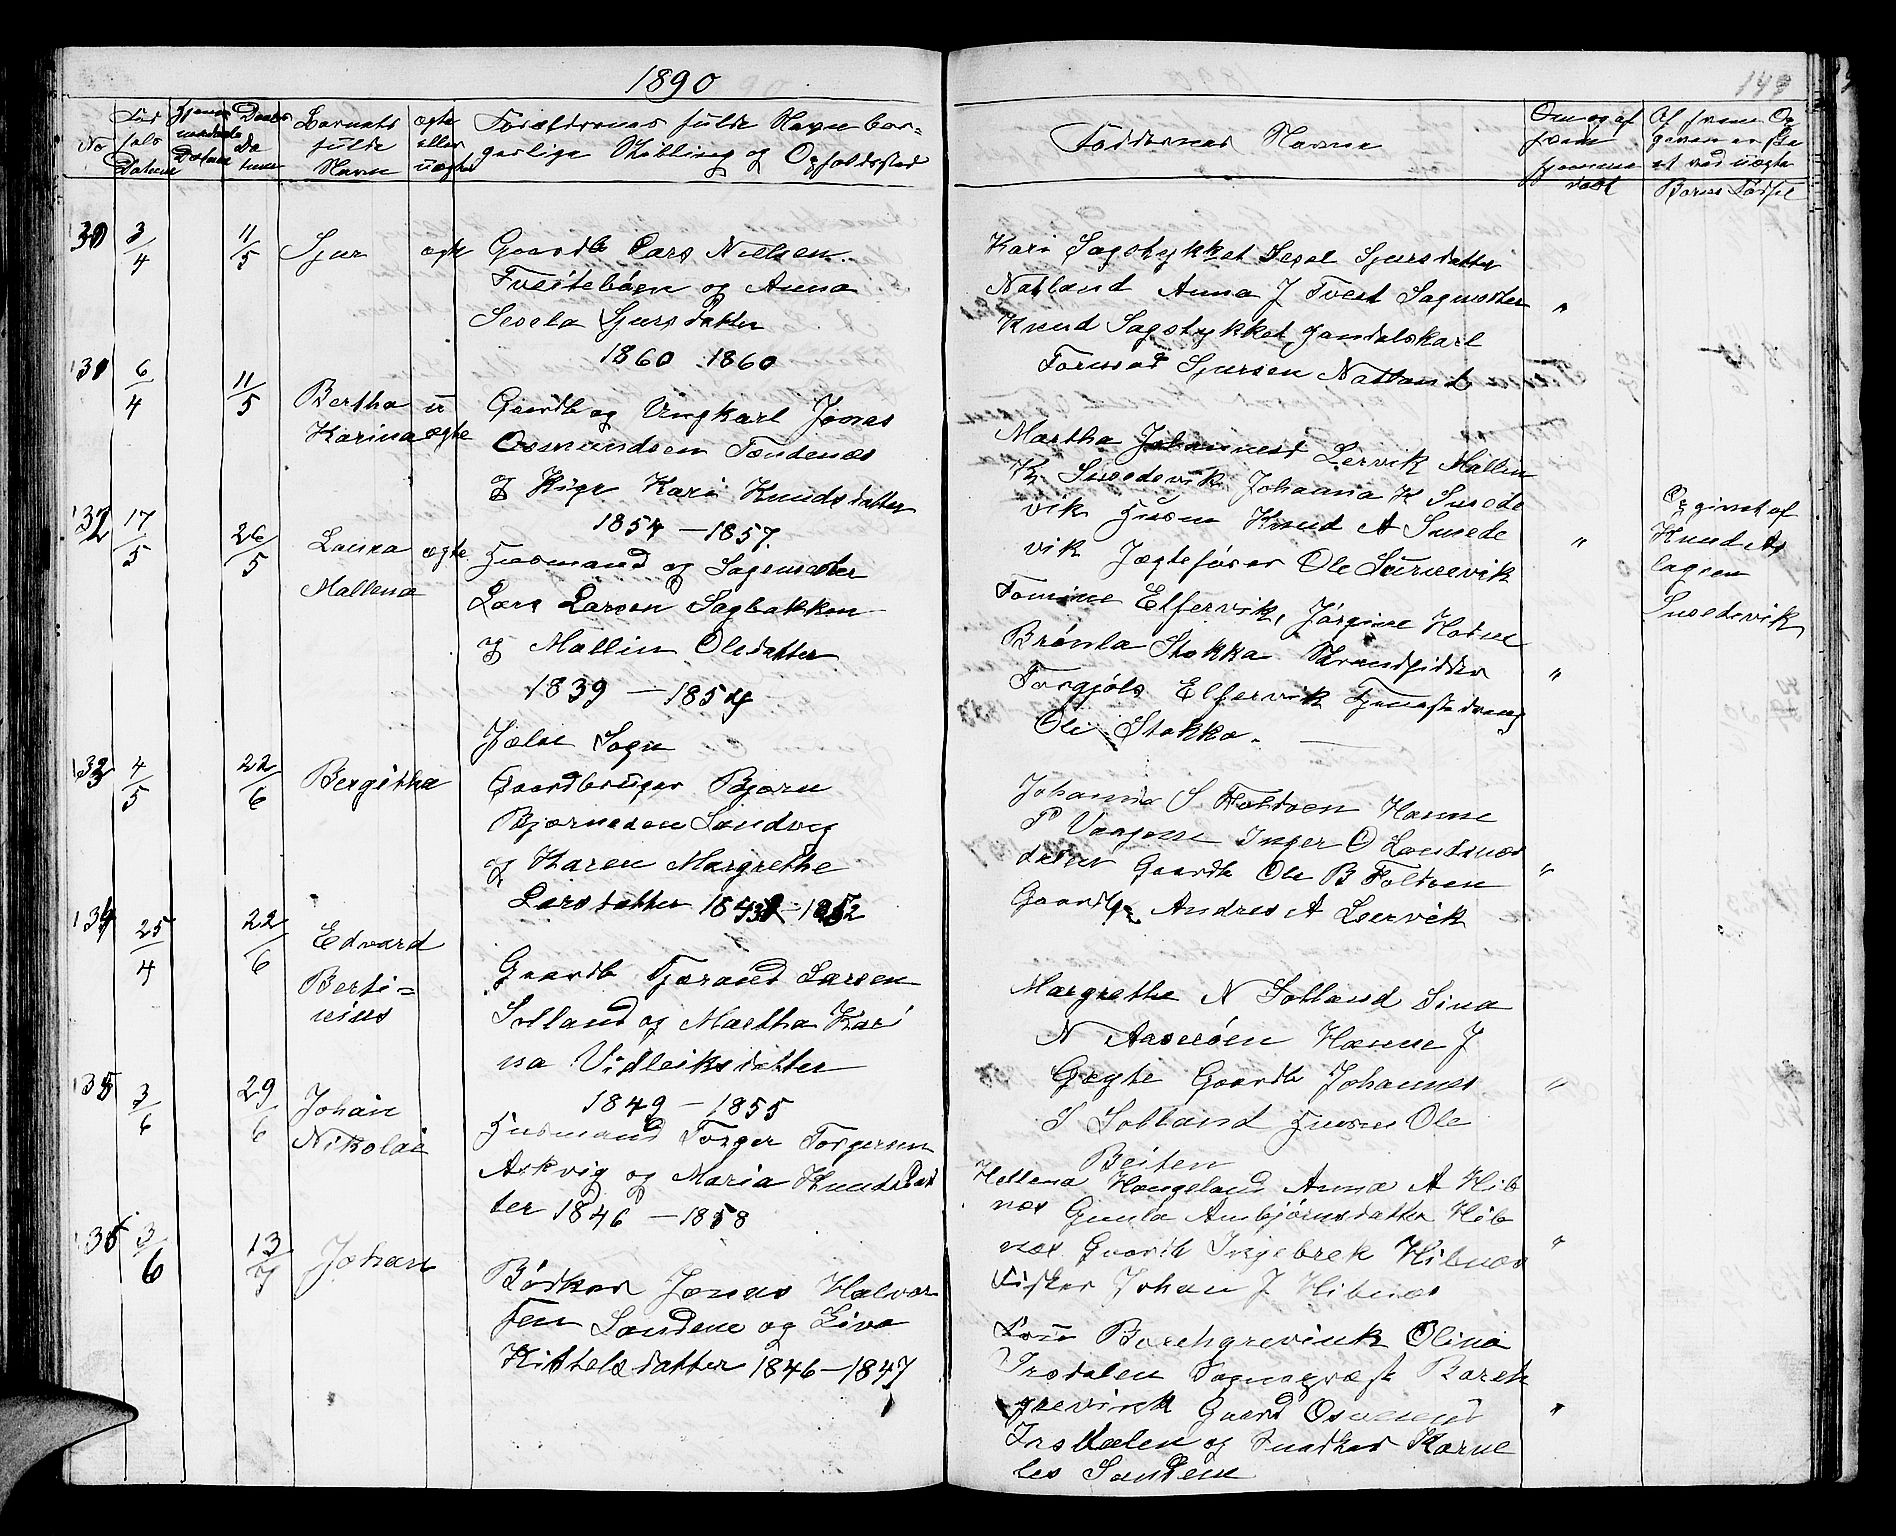 1890
149
No
Datum
Barnets
fulde
Navn
ægte
eller
uægte
Forældrenes fulde Navn bor-
gerlige Stilling og Opholdssted
Faddernes Navne
Om og af
hvem
hjemme
døbt
Af hvem Op
given er ske
et ved uægte
Børns Fødsel
130 3/4 11/5 Sjur ægte Gaardb Lars Nielsen
Tveitebøen og Anna
Sesela Sjursdatter
1860 1860
Kari Sagstykket Sesel Sjursdatter
Natland Anna J Tveit Sagmester
Knud Sagstykket Handelskarl
Tormod Sjursen Natland
"
131 6/4 11/5 Bertha
Karina
u
ægte
Gaardb og Ungkarl Jonas
Osmundsen Tændenæs
og Pige Kari Knudsdatter
1854 - 1857
Martha Johannesd Lervik Mallin
K Susedevik Johanna K Susede
vik Husm Knud A Susede
vik Jægtefører Ole Survevik
"
Opgivet af
Knud As
lagsen
Susedevik
132 17/5 26/5 Laura
Mallena
ægte
Husmand og Sagmester
Lars Larsen Sagbakken
og Mallin Olsdatter
1839 - 1854
Tomine Elfervik, Jørgine Hotne
Brønla Stokka Strandsidder
Torgjøls Elfervik Tjenestedreng
Ole Stokka
"
Jælse Sogn
133 4/5 22/6 Bergitha
Gaardbruger Bjørn
Bjørnsøn Sandvig
og Karen Margrethe
Larsdatter
Johanna S Foldøen Hanne
P Vaagene Inger O Landsnes
Gaardb Ole B Foldøen
Gaardbr Andres A Lervik
"
134 25/4 22/6 Edvard
Berti=
nius
Gaardb Tjerand Larsen
Solland og Martha Kari
na Vidleiksdatter
1849 - 1855
Margrethe N Solland Sina
N Aaserøen Hanne J
Gaardb Johannes
S Solland Husm Ole
Beiten
"
135 3/6 29/6 Johan
Nikolai
Husmand Torger Torgersen
Askvig og Maria Knudsdat
ter 1846 - 1858
Hellena Haugeland Anna A Hib
næs Gunla Ambjørnsdatter Hib
næs Gaardb Ingebrek Hibnæs
Fisker Johan J Hibnæs
"
136 3/6 13/7 Johan
Bødker Jonas Halvor
sen Sandene og Siva
Kittelsdatter 1846 - 1847
Fru Borchgrevink Olina
Irsdalen Sognepræst Borch
grevink Gaardb Osmund
Irsdalen og Snedker Korne
les Sandene
"